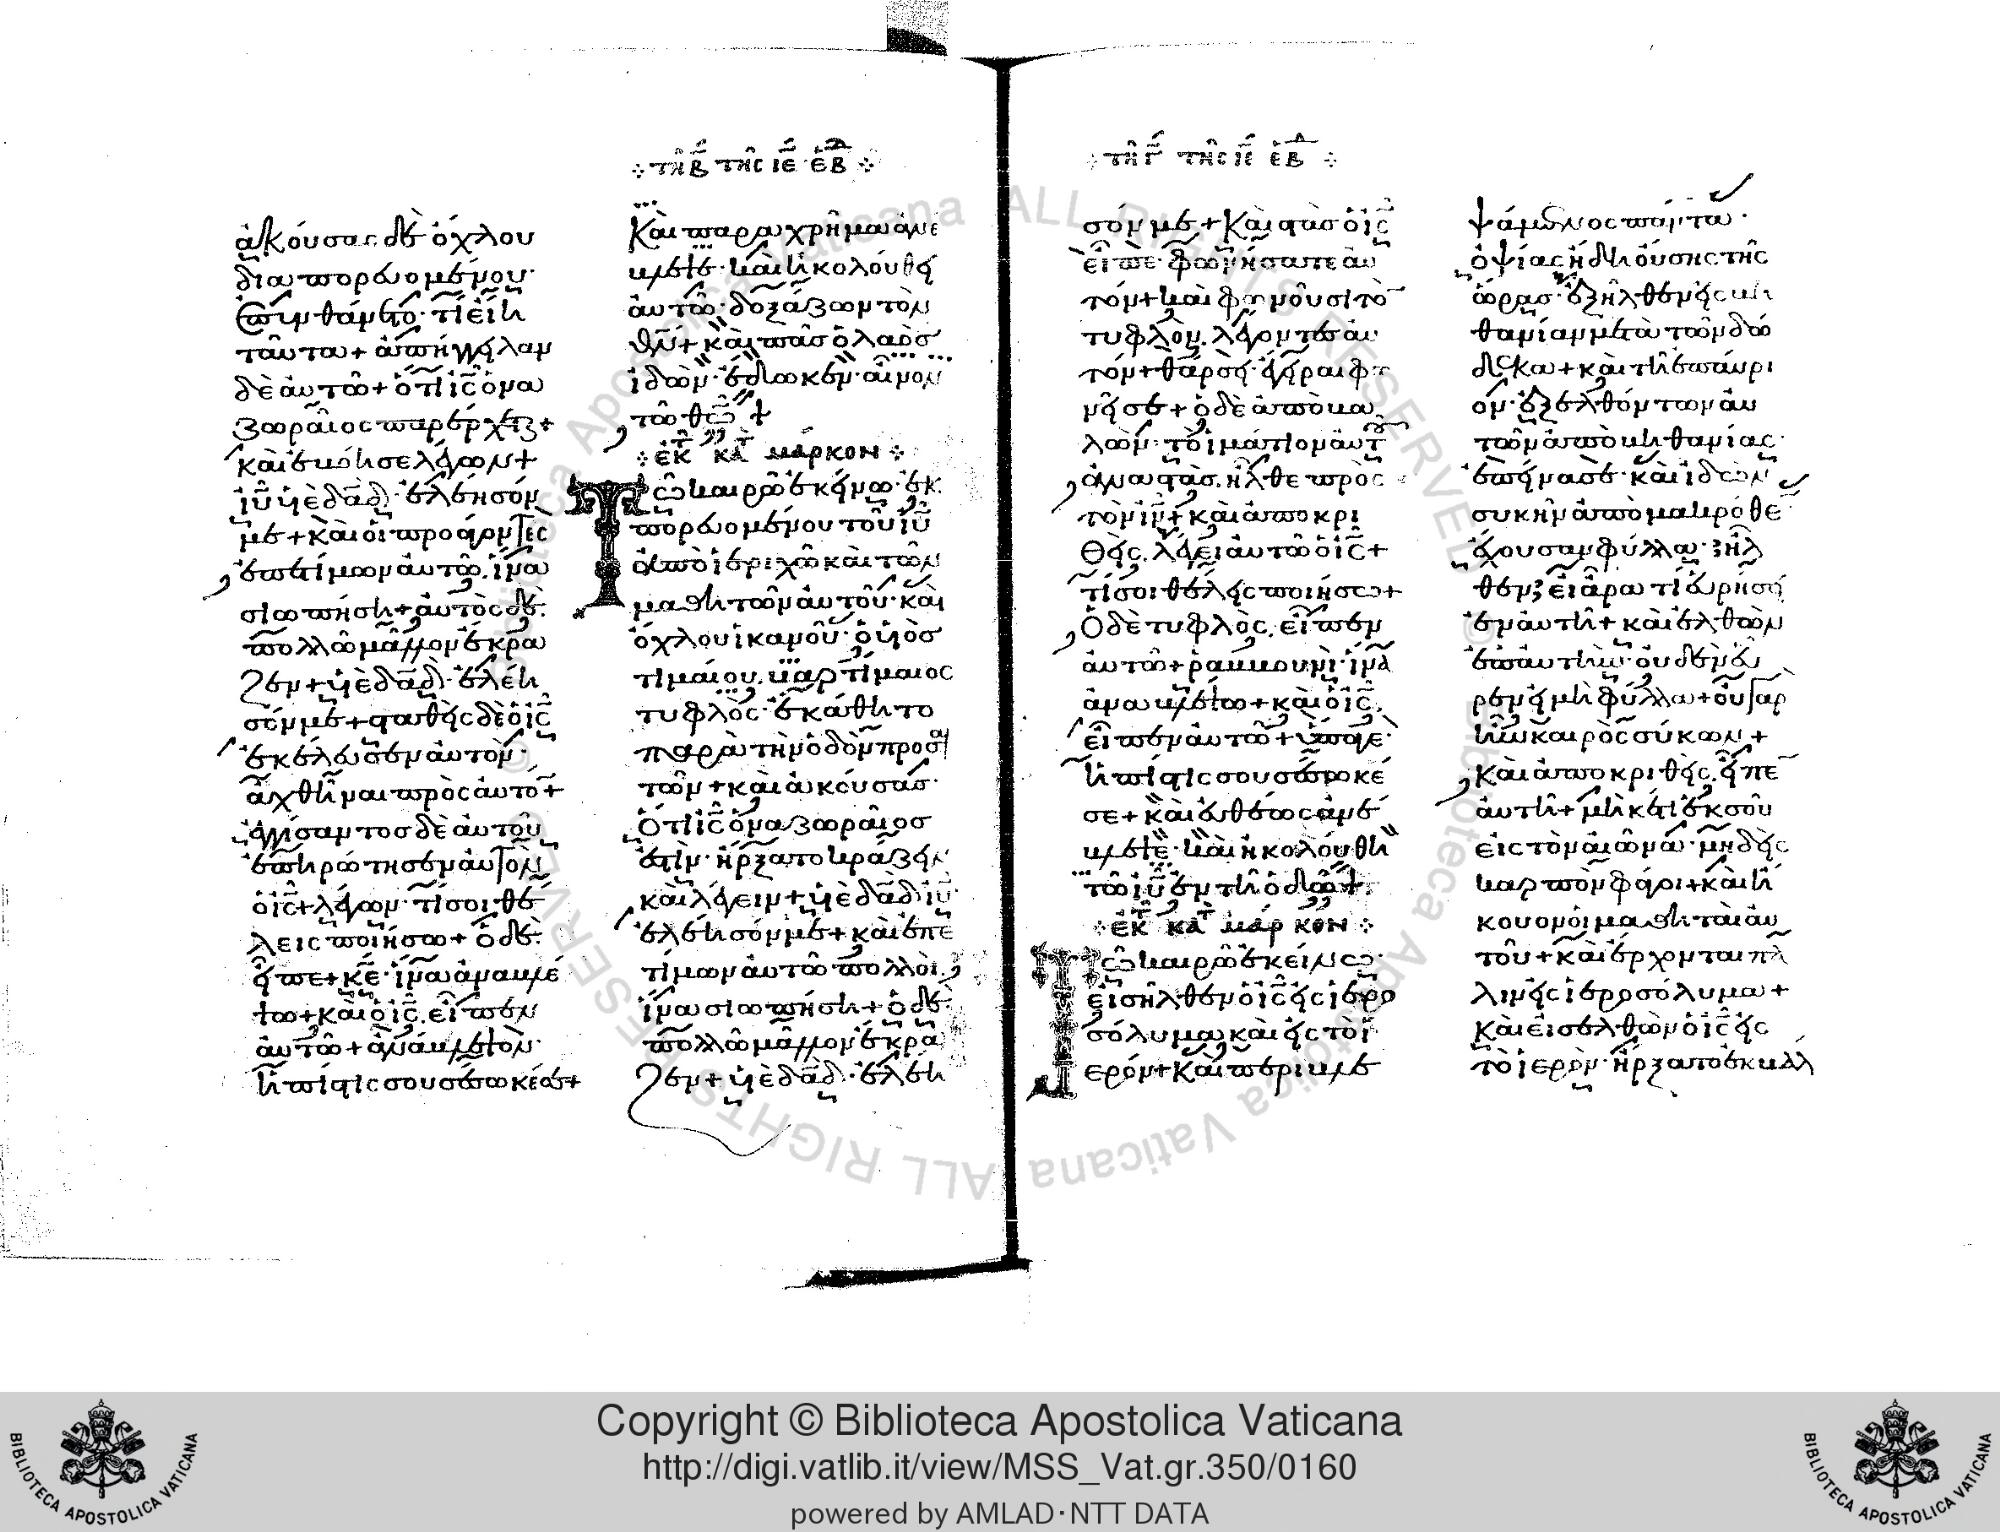 ἀκούσας δὲ ὄχλου
διαπορευομένου·
ἐπυνθάνετο· τί εἴη
ταῦτα + ἀπήγγειλαν
δὲ αὐτῶ + ὅτι ις ὁ να
ζωραῖος παρέρχεται +
καὶ ἐβόησε λέγων +
ιυ υἱὲ δαδ· ἐλέησόν
με + καὶ οἱ προάγοντες
ἐπετίμων αὐτῶ, ἵνα
σιωπήση + αὐτὸς δὲ
πολλῶ μᾶλλον ἔκρα
ζεν + υἱὲ δαδ· ἐλέη
σόν με + σταθεὶς δὲ ὁ ις
ἐκέλευσεν αὐτὸν·
ἀχθῆναι πρὸς αὐτόν +
ἐγγίσαντος δὲ αὐτοῦ
ἐπηρώτησεν αὐτὸν
ὁ ις + λέγων· τί σοι θέ
λεις ποιήσω + ὁ δὲ
εἶπε + κε· ἵνα ἀναβλέ
ψω + καὶ ὁ ις, εἶπεν
αὐτῶ + ἀνάβλεψον·
ἡ πίστις σου σέσωκέ σε +
τη β της ιε εβδ
Καὶ παραχρῆμα ἀνέ
βλεψε· καὶ ἠκολούθει
αὐτῶ· δοξάζων τὸν
θν + καὶ πᾶς ὁ λαὸς
ἰδὼν· ἔδωκεν· αἶνον
τῶ θεῶ
ἐκ κατ μάρκον
Τῶ καιρῶ ἐκείνω· ἐκ
πορευομένου τοῦ ιυ
ἀπὸ ἱεριχῶ καὶ τῶν
μαθητῶν αὐτοῦ· καὶ
ὄχλου ἱκανοῦ· ὁ υἱὸς
τιμαίου, βαρτίμαιος
τυφλὸς· ἐκάθητο
παρὰ τὴν ὁδὸν προσαι
τῶν + καὶ ἀκούσας·
ὅτι ις ὁ ναζωραῖος
ἐστὶν· ἤρξατο κράζειν
καὶ λέγειν + υἱὲ δαδ ιυ
ἐλέησόν με + καὶ ἐπε
τίμων αὐτῶ πολλοὶ,
ἵνα σιωπήση + ὁ δὲ
πολλῶ μᾶλλον ἔκρα
ζεν + υἱὲ δαδ· ἐλέη
τη γ της ιε εβδ
σόν με + Καὶ στὰς ὁ ις
εἶπε· φωνήσατε αὐ
τόν + καὶ φωνοῦσι τὸν
τυφλὸν, λέγοντες αὐ
τόν + θάρσει· ἔγειραι φω
νεῖ σε + ὁ δὲ ἀποβα
λὼν· τὸ ἱμάτιον αὐτοῦ
ἀναστὰς, ἦλθε πρὸς
τὸν ιν + καὶ ἀποκρι
θεὶς, λέγει αὐτῶ ὁ ις +
τί σοι θέλεις ποιήσω +
Ὁ δὲ τυφλὸς, εἶπεν
αὐτῶ + ραββουνὶ· ἵνα
ἀναβλέψω + καὶ ὁ ις,
εἶπεν αὐτῶ + ὕπαγε·
ἡ πίστις σου σέσωκέ
σε + καὶ εὐθέως ἀνέ
βλεψε· καὶ ἠκολούθει
τῶ ιυ ἐν τῆ ὁδῶ
ἐκ κατ μάρκον
Τῶ καιρῶ ἐκείνω·
εἰσῆλθεν ὁ ις εἰς ἱερο
σόλυμα καὶ εἰς τὸ ἱ
ερόν + Καὶ περιβλε
ψάμενος πάντα·
ὀψίας ἤδη οὔσης τῆς
ὥρας· ἐξῆλθεν εἰς βη
θανίαν μετὰ τῶν δώ
δεκα + καὶ τῆ ἐπαύρι
ον· ἐξελθόντων αὐ
τῶν ἀπὸ βηθανίας·
ἐπείνασε· καὶ ἰδὼν
συκῆν ἀπὸ μακρόθεν
ἔχουσαν φύλλα· ἦλ
θεν εἰ ἄρα τί εὑρήσει
ἐν αὐτῆ + καὶ ἐλθὼν
ἐπ' αὐτὴν· οὐδὲν εὗ
ρεν εἰ μὴ φύλλα + οὐ γὰρ
ἦν καιρὸς σύκων +
Καὶ ἀποκριθεὶς, εἶπεν
αὐτῆ + μηκέτι ἐκ σοῦ
εἰς τὸν αἰῶνα· μηδεὶς
καρπὸν φάγοι + καὶ ἤ
κουον οἱ μαθηταὶ αὐ
τοῦ + καὶ ἔρχονται πά
λιν εἰς ἱεροσόλυμα +
Καὶ εἰσελθὼν ὁ ις εἰς
τὸ ἱερὸν· ἤρξατο ἐκβάλ
Copyright © Biblioteca Apostolica Vaticana
http://digi.vatlib.it/view/MSS_Vat.gr.350/0160
powered by AMLAD·NTT DATA
BIBLIOTECA APOSTOLICA VATICANA
BIBLIOTECA APOSTOLICA VATICANA
© Biblioteca Apostolica Vaticana ALL RIGHTS RESERVED © Biblioteca Apostolica Vaticana ALL RIGHTS RESERVED